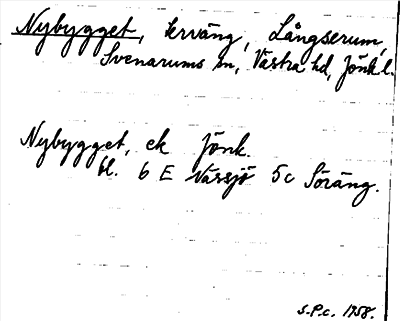 Nybygget, terväng, Långserum,
Svenarums sn, Västra hd, Jönk.l.
Nybygget, ek Jönk.
bl. 6 E Nässjö 5c Söräng.
S.P.c. 1958.